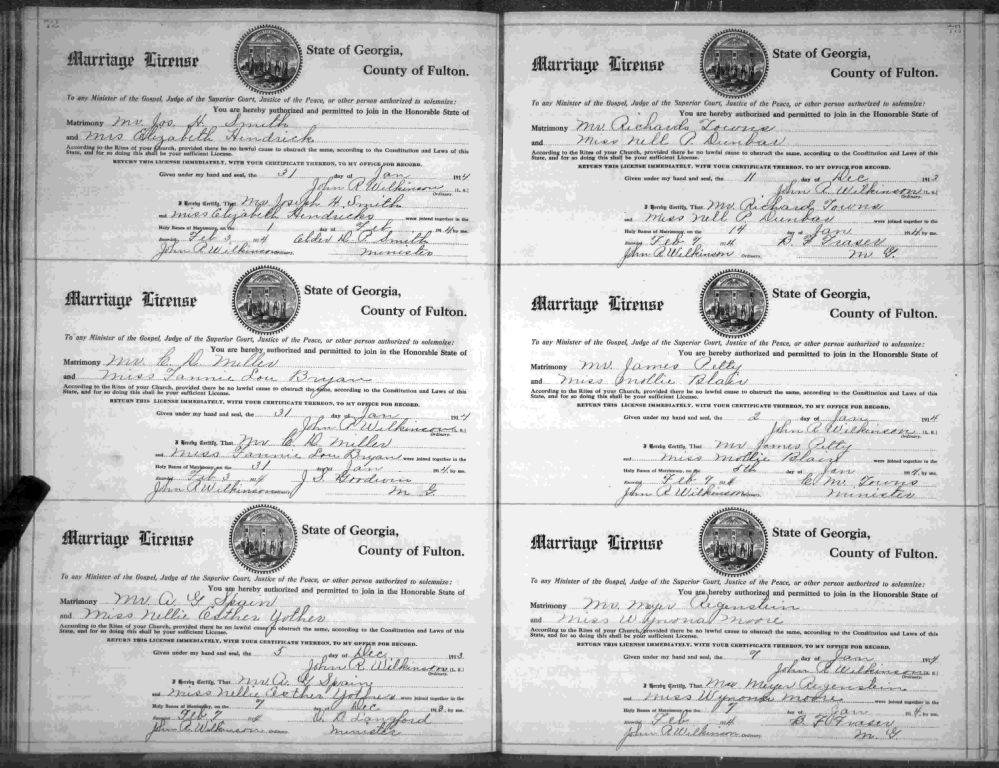 72
Marriage License
State of Georgia,
County of Fulton.
To any Minister of the Gospel, Judge of the Superior Court, Justice of the Peace, or other person authorized to solemnize:
You are hereby authorized and permitted to join in the Honorable State of
Matrimony Mr. Jos. H. Smith
and Mrs Elizabeth Hindrick
According to the Rites of your Church, provided there be no lawful cause to obstruct the same, according to the Constitution and Laws of this
State, and for so doing this shall be your sufficient License.
RETURN THIS LICENSE IMMEDIATELY, WITH YOUR CERTIFICATE THEREON, TO MY OFFICE FOR RECORD.
Given under my hand and seal, the 31 day of Jan 1914
John R Wilkinson (L. S.)
Ordinary.
I Hereby Certify, That Mr Joseph H. Smith
and Miss Elizabeth Hendricks were joined together in the
Holy Banns of Matrimony, on the 1 day of Feb 1914 by me.
Feb 3 1914 Elder D. P. Smith
John R Wilkinson Ordinary. Minister
Marriage License
State of Georgia,
County of Fulton.
To any Minister of the Gospel, Judge of the Superior Court, Justice of the Peace, or other person authorized to solemnize:
You are hereby authorized and permitted to join in the Honorable State of
Matrimony Mr. C D. Miller
and Miss Fannie Lou Bryan
According to the Rites of your Church, provided there be no lawful cause to obstruct the same, according to the Constitution and Laws of this
State, and for so doing this shall be your sufficient License.
RETURN THIS LICENSE IMMEDIATELY, WITH YOUR CERTIFICATE THEREON, TO MY OFFICE FOR RECORD.
Given under my hand and seal, the 31 day of Jan 1914
John R Wilkinson (L. S.)
Ordinary.
I Hereby Certify, That Mr C D Miller
and Miss Fannie Lou Bryan were joined together in the
Holy Banns of Matrimony, on the 31 day of Jan 1914 by me.
Feb 3 1914 J. S. Goodwin
John R Wilkinson Ordinary. M G.
Marriage License
State of Georgia,
County of Fulton.
To any Minister of the Gospel, Judge of the Superior Court, Justice of the Peace, or other person authorized to solemnize:
You are hereby authorized and permitted to join in the Honorable State of
Matrimony Mr A G Spain
and Miss Nellie Esther Yother
According to the Rites of your Church, provided there be no lawful cause to obstruct the same, according to the Constitution and Laws of this
State, and for so doing this shall be your sufficient License.
RETURN THIS LICENSE IMMEDIATELY, WITH YOUR CERTIFICATE THEREON, TO MY OFFICE FOR RECORD.
Given under my hand and seal, the 5 day of Dec 1913
John R. Wilkinson (L. S.)
Ordinary.
I Hereby Certify, That Mr A. G Spain
and Miss Nellie Esther were joined together in the
Holy Banns of Matrimony, on the 7 day of Dec 1913 by me.
Feb 7 1914 D Langford
John R Wilkinson Ordinary. Minister
73
Marriage License
State of Georgia,
County of Fulton.
To any Minister of the Gospel, Judge of the Superior Court, Justice of the Peace, or other person authorized to solemnize:
You are hereby authorized and permitted to join in the Honorable State of
Matrimony Mr Richard Towns
and Miss Nell P. Dunbar
According to the Rites of your Church, provided there be no lawful cause to obstruct the same, according to the Constitution and Laws of this
State, and for so doing this shall be your sufficient License.
RETURN THIS LICENSE IMMEDIATELY, WITH YOUR CERTIFICATE THEREON, TO MY OFFICE FOR RECORD.
Given under my hand and seal, the 11 day of Dec 1913
John R Wilkinson (L. S.)
Ordinary.
I Hereby Certify, That Mr. Richard Towns
and Miss Nell P Dunbar were joined together in the
Holy Banns of Matrimony, on the 14 day of Jan 1914 by me.
Feb 7 1914 B. F Fraser
John R Wilkinson Ordinary. M G.
Marriage License
State of Georgia,
County of Fulton.
To any Minister of the Gospel, Judge of the Superior Court, Justice of the Peace, or other person authorized to solemnize:
You are hereby authorized and permitted to join in the Honorable State of
Matrimony Mr. James Petty
and Miss Mollie Blair
According to the Rites of your Church, provided there be no lawful cause to obstruct the same, according to the Constitution and Laws of this
State, and for so doing this shall be your sufficient License.
RETURN THIS LICENSE IMMEDIATELY, WITH YOUR CERTIFICATE THEREON, TO MY OFFICE FOR RECORD.
Given under my hand and seal, the 2 day of Jan 1914
John R Wilkinson (L. S.)
Ordinary.
I Hereby Certify, That Mr James Petty
and Miss Mollie Blair were joined together in the
Holy Banns of Matrimony, on the 5th day of Jan 1914 by me.
Feb 7 1914 C. M. Towns
John R Wilkinson Ordinary. Minister
Marriage License
State of Georgia,
County of Fulton.
To any Minister of the Gospel, Judge of the Superior Court, Justice of the Peace, or other person authorized to solemnize:
You are hereby authorized and permitted to join in the Honorable State of
Matrimony Mr. Meyer Regenstein
and Miss Wynona Moore
According to the Rites of your Church, provided there be no lawful cause to obstruct the same, according to the Constitution and Laws of this
State, and for so doing this shall be your sufficient License.
RETURN THIS LICENSE IMMEDIATELY, WITH YOUR CERTIFICATE THEREON, TO MY OFFICE FOR RECORD.
Given under my hand and seal, the 7 day of Jan 1914
John R Wilkinson (L. S.)
Ordinary.
I Hereby Certify, That Meyer Regenstein
and Miss Wynona Moore were joined together in the
Holy Banns of Matrimony, on the 7 day of Jan 1914 by me.
Feb 1914 B. F Fraser
John R Wilkinson Ordinary. M. G.